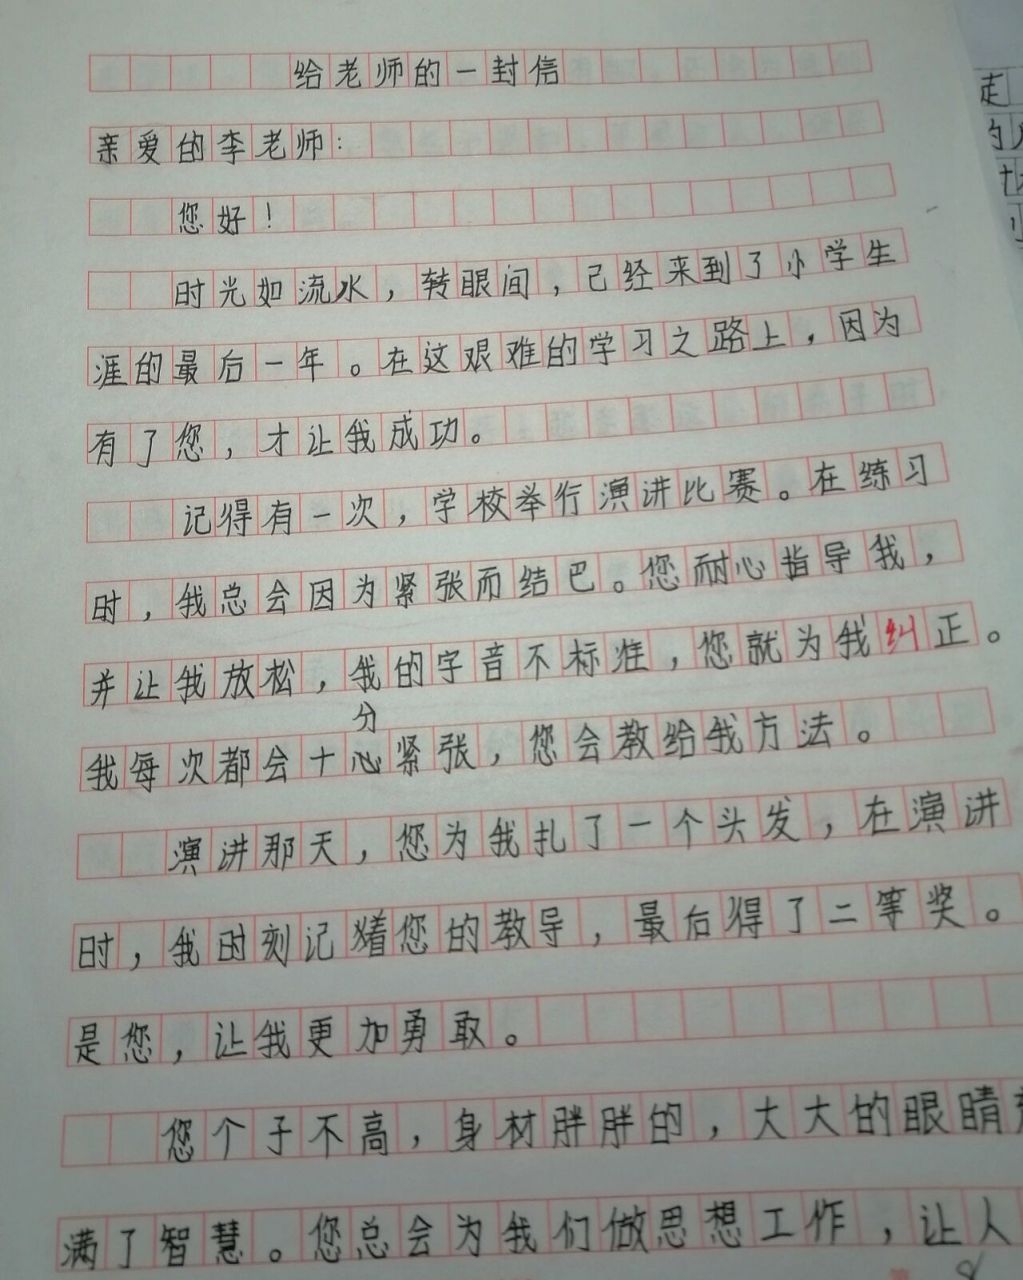 给老师的一封信
亲爱的李老师：
您好！
时光如流水，转眼间，己经来到了小学生
涯的最后一年。在这艰难的学习之路上，因为
有了您，才让我成功。
记得有一次，学校举行演讲比赛。在练习
时，我总会因为紧张而结巴。您耐心指导我，
并让我放松，我的字音不标准，您就为我纠正。
分
我每次都会十心紧张，您会教给我方法。
演讲那天，您为我扎了一个头发，在演讲
时，我时刻记着您的教导，最后得了二等奖。
是您，让我更加勇敢。
您个子不高，身材胖胖的，大大的眼睛
满了智慧。您总会为我们做思想工作，让人
走
的